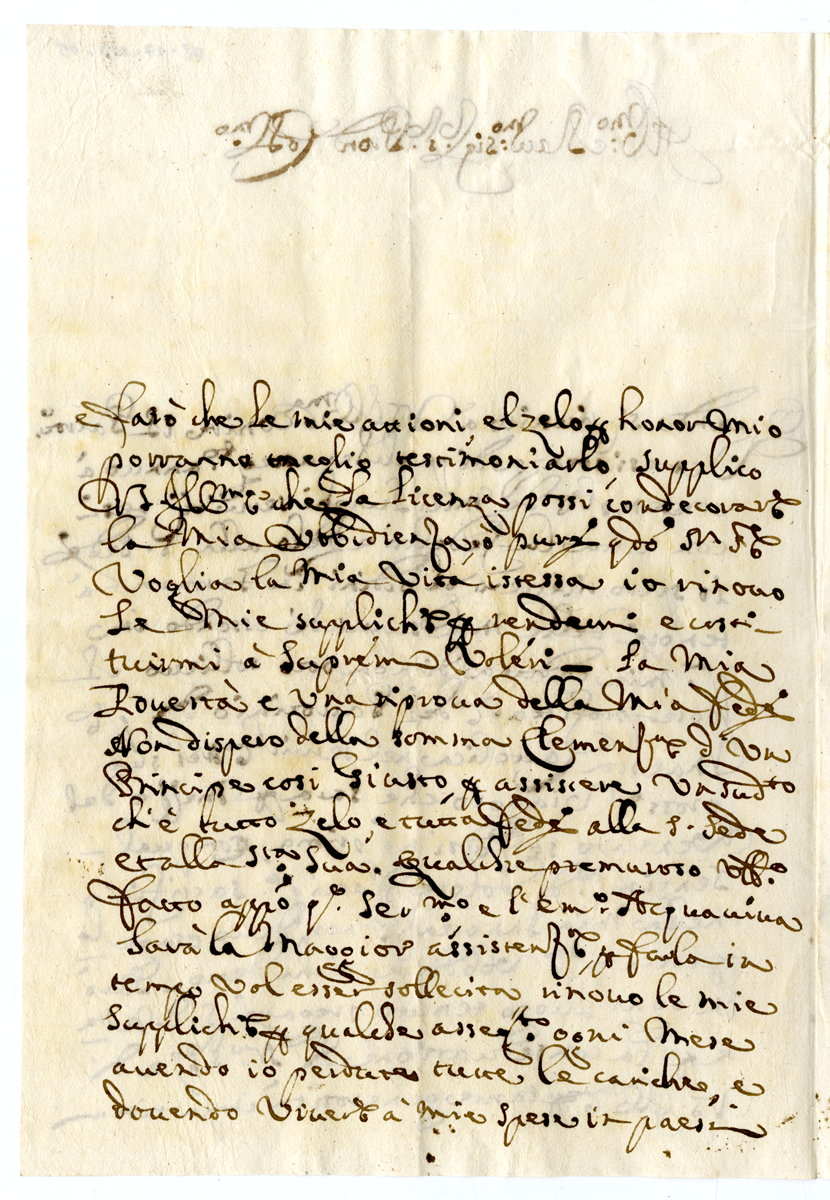 e farò che le mie attioni, el zelo p honor Mio
porranno meglio testimoniarlo, supplico
V.S. Ill.ma che la licenza possi condecorare
la Mia Ubbidienza, ò pure qdo S.
Voglia la Mia Vita istessa io rinovo
Le Mie suppliche p rendermi e costi-
tuirmi à Supremi Voleri_ La Mia
Povertà e una riprova della Mia fede
Non dispero della somma Clemenza d'un
Principe così Giusto, p assistere un sud.to
ch'è tutto Zelo, e tutta fede alla S. Sede
et alla S.tà Sua. Qualche premuroso uff.o
fatto appo q.o Ser.mo e l'em.o Acquaviva
Sarà la Maggior assistenza, p farla in
tempo vol esser sollecita rinovo le mie
suppliche p qualche asseg.to ogni Mese
avendo io perdute tutte le cariche, e
dovendo vivere à mie spese in paesi